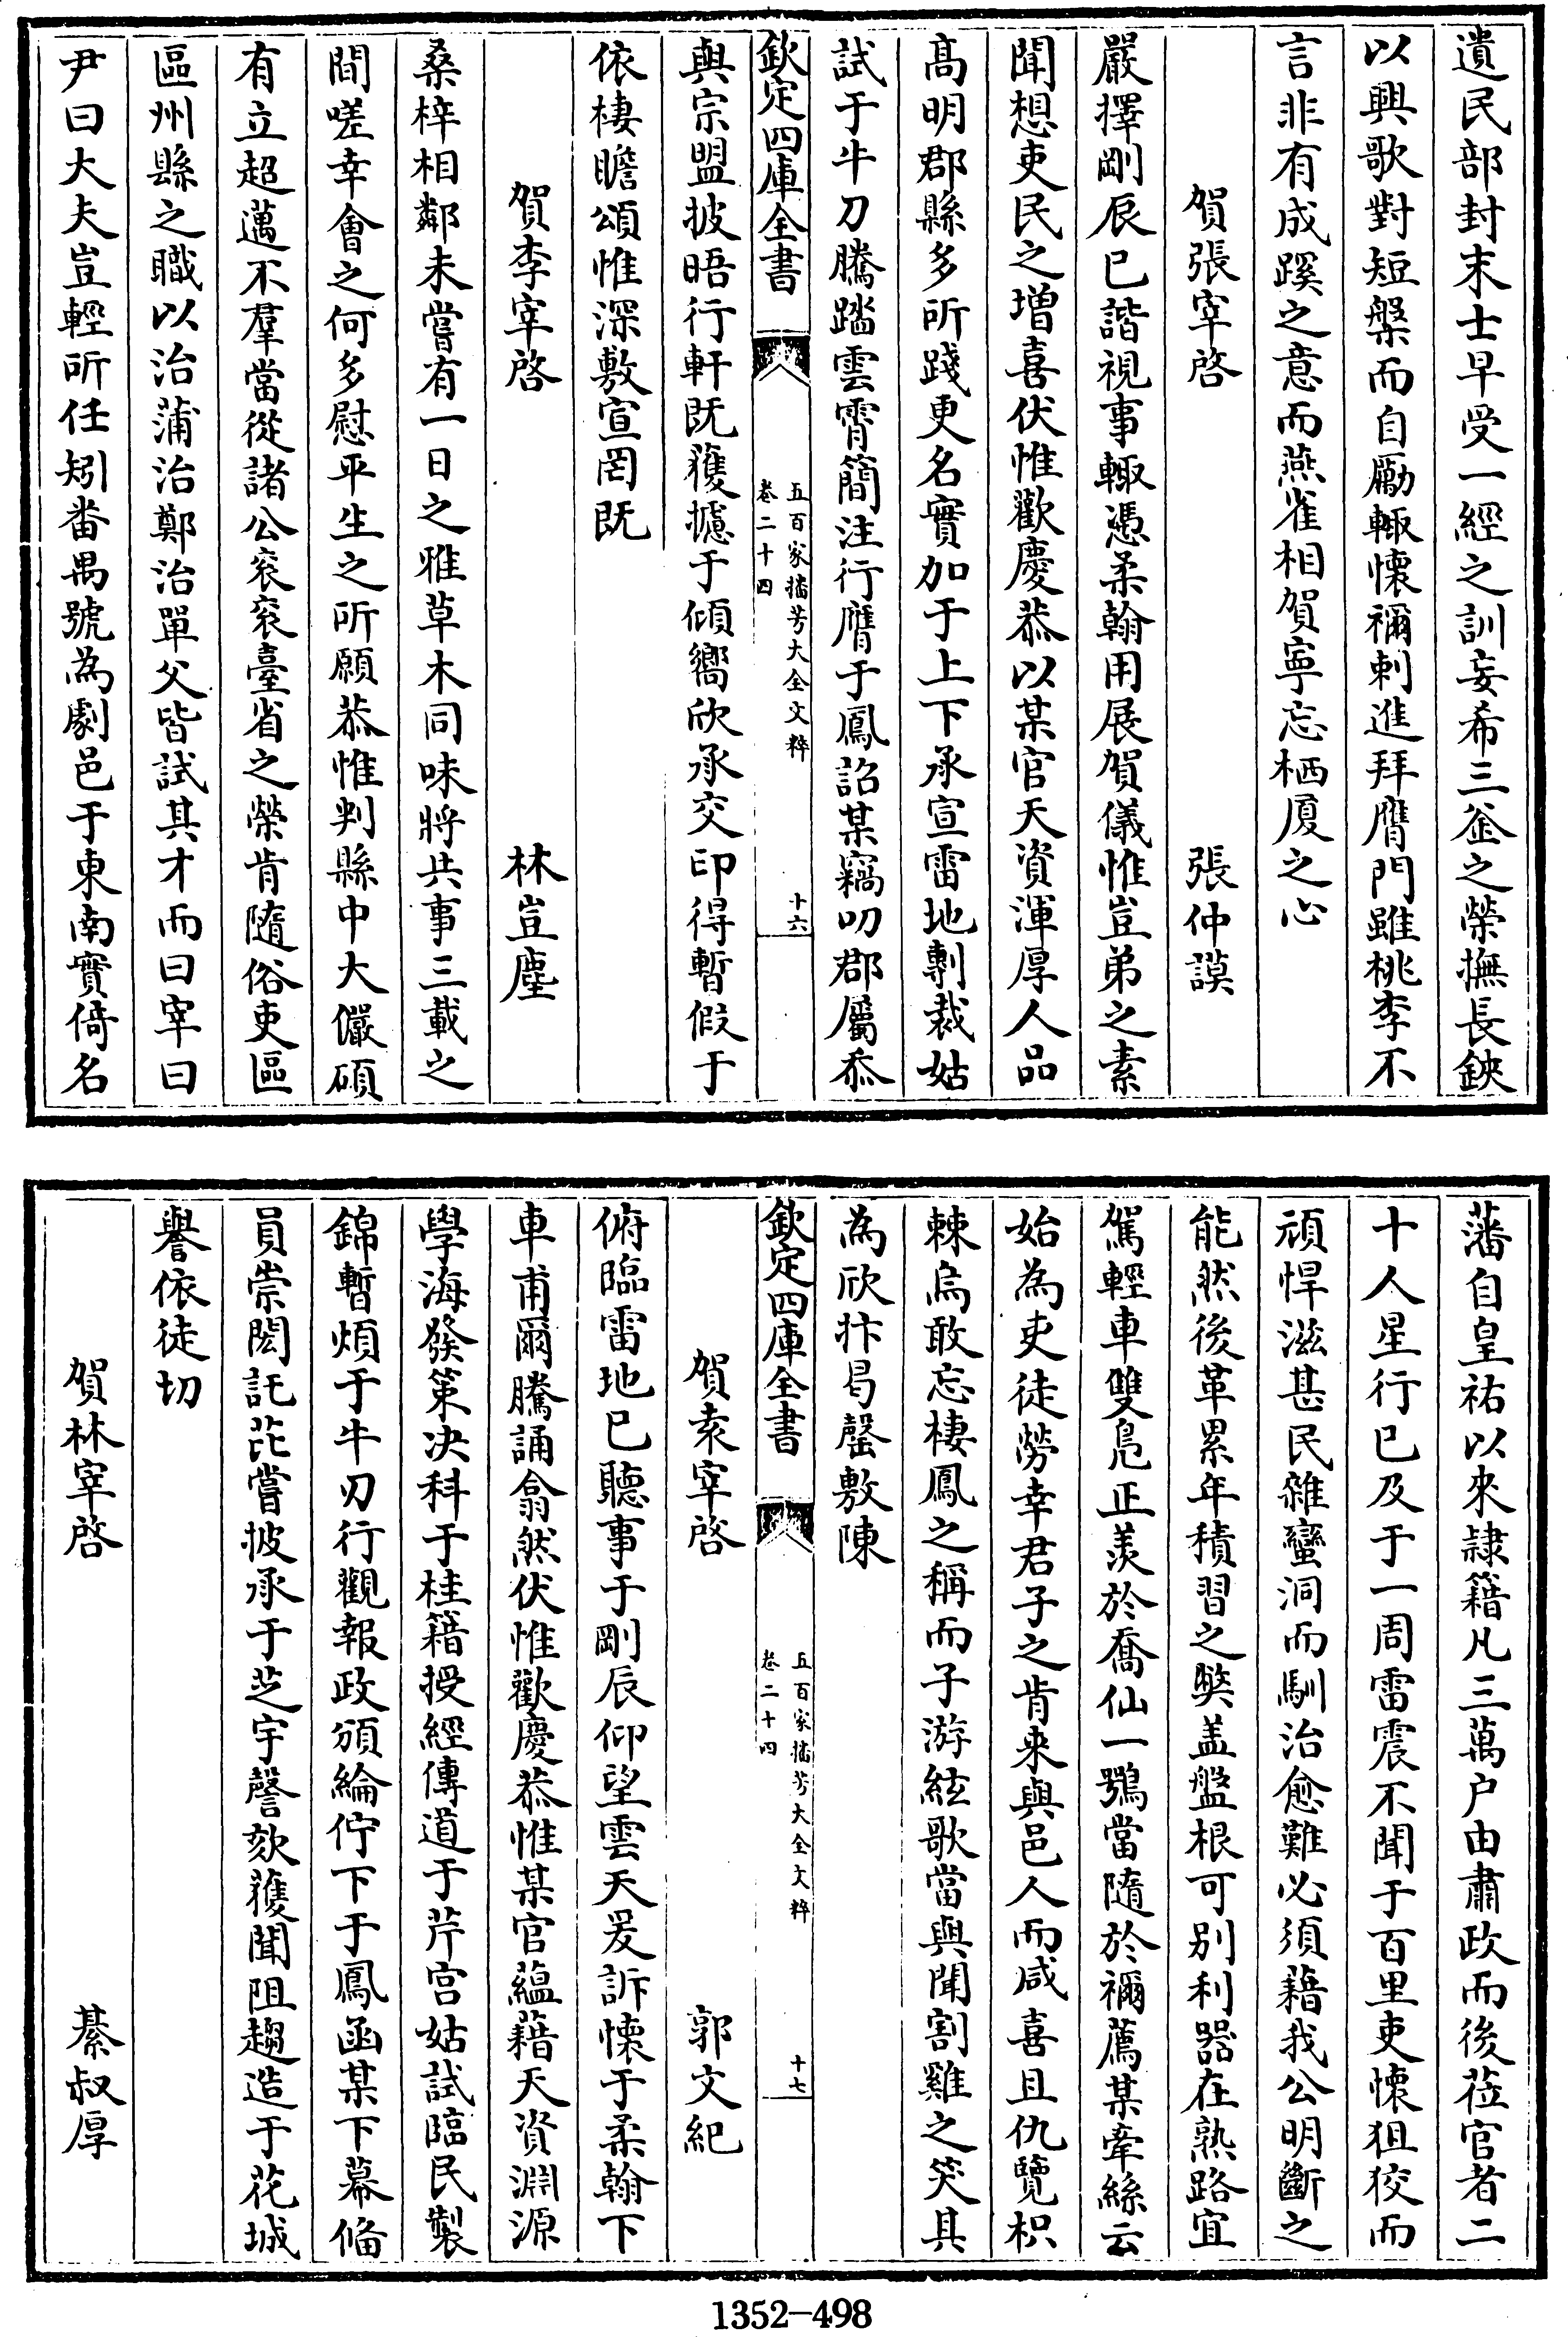 遺民部封末士早受一經之訓妄希三釜之榮撫長鋏
以興歌對短檠而自勵輙懷禰刺進拜膺門雖桃李不
言非有成蹊之意而燕雀相賀寧忘栖厦之心
賀張宰啓　張仲謨
嚴擇剛辰已諧視事輙憑柔翰用展賀儀惟豈弟之素
聞想吏民之増喜伏惟歡慶恭以某官天資渾厚人品
髙明郡縣多所踐更名實加于上下承宣雷地剸裁姑
試于牛刀騰踏雲霄簡注行膺于鳳詔某竊叨郡屬忝
欽定四庫全書　五百家播芳大全文粹 卷二十四　十六
與宗盟披晤行軒既獲攄于傾嚮欣承交印得暫假于
依棲瞻頌惟深敷宣罔既
賀李宰啓　林豈塵
桑梓相鄰未嘗有一日之雅草木同味將共事三載之
間嗟幸會之何多慰平生之所願恭惟判縣中大儼碩
有立超邁不羣當從諸公衮衮臺省之榮肯隨俗吏區
區州縣之職以治蒲治鄭治單父皆試其才而曰宰曰
尹曰大夫豈輕所任矧番禺號為劇邑于東南實倚名
藩自皇祐以來隷籍凡三萬户由肅政而後莅官者二
十人星行已及于一周雷震不聞于百里吏懷狙狡而
頑悍滋甚民雜蠻洞而馴治愈難必須藉我公明斷之
能然後革累年積習之弊盖盤根可别利器在熟路宜
駕輕車雙鳬正羨於喬仙一鶚當隨於禰薦某牽絲云
始為吏徒勞幸君子之肯来與邑人而咸喜且仇覽枳
棘烏敢忘棲鳳之稱而子游絃歌當與聞割雞之笑具
為欣抃曷罄敷陳
欽定四庫全書　五百家播芳大全文粹 卷二十四　十七
賀索宰啓　郭文紀
俯臨雷地已聽事于剛辰仰望雲天爰訴悚于柔翰下
車甫爾騰誦翕然伏惟歡慶恭惟某官藴藉天資淵源
學海發策决科于桂籍授經傳道于芹宫姑試臨民製
錦暫煩于牛刃行觀報政頒綸佇下于鳳函某下幕偹
員崇閎託芘嘗披承于芝宇謦欬獲聞阻趨造于花城
譽依徒切
賀林宰啓　綦叔厚
1352-498